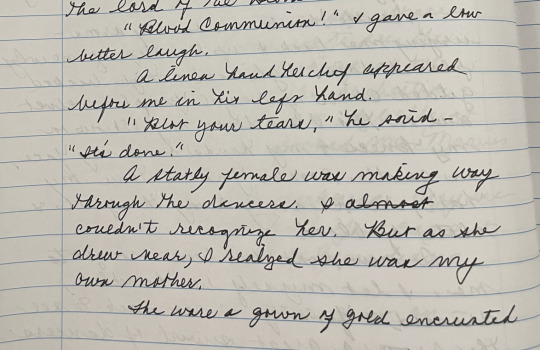 the lord of the
"Blood Communion!" I gave a low
bitter laugh.
A linen handkerchef appeared
before me in his left hand.
"Blot your tears," he said –
"It's done."
A statly female was making way
through the dancers. I almost
couldn't recognize her. But as she
drew near, I realized she was my
own mother.
She wore a gown of gold encrusted